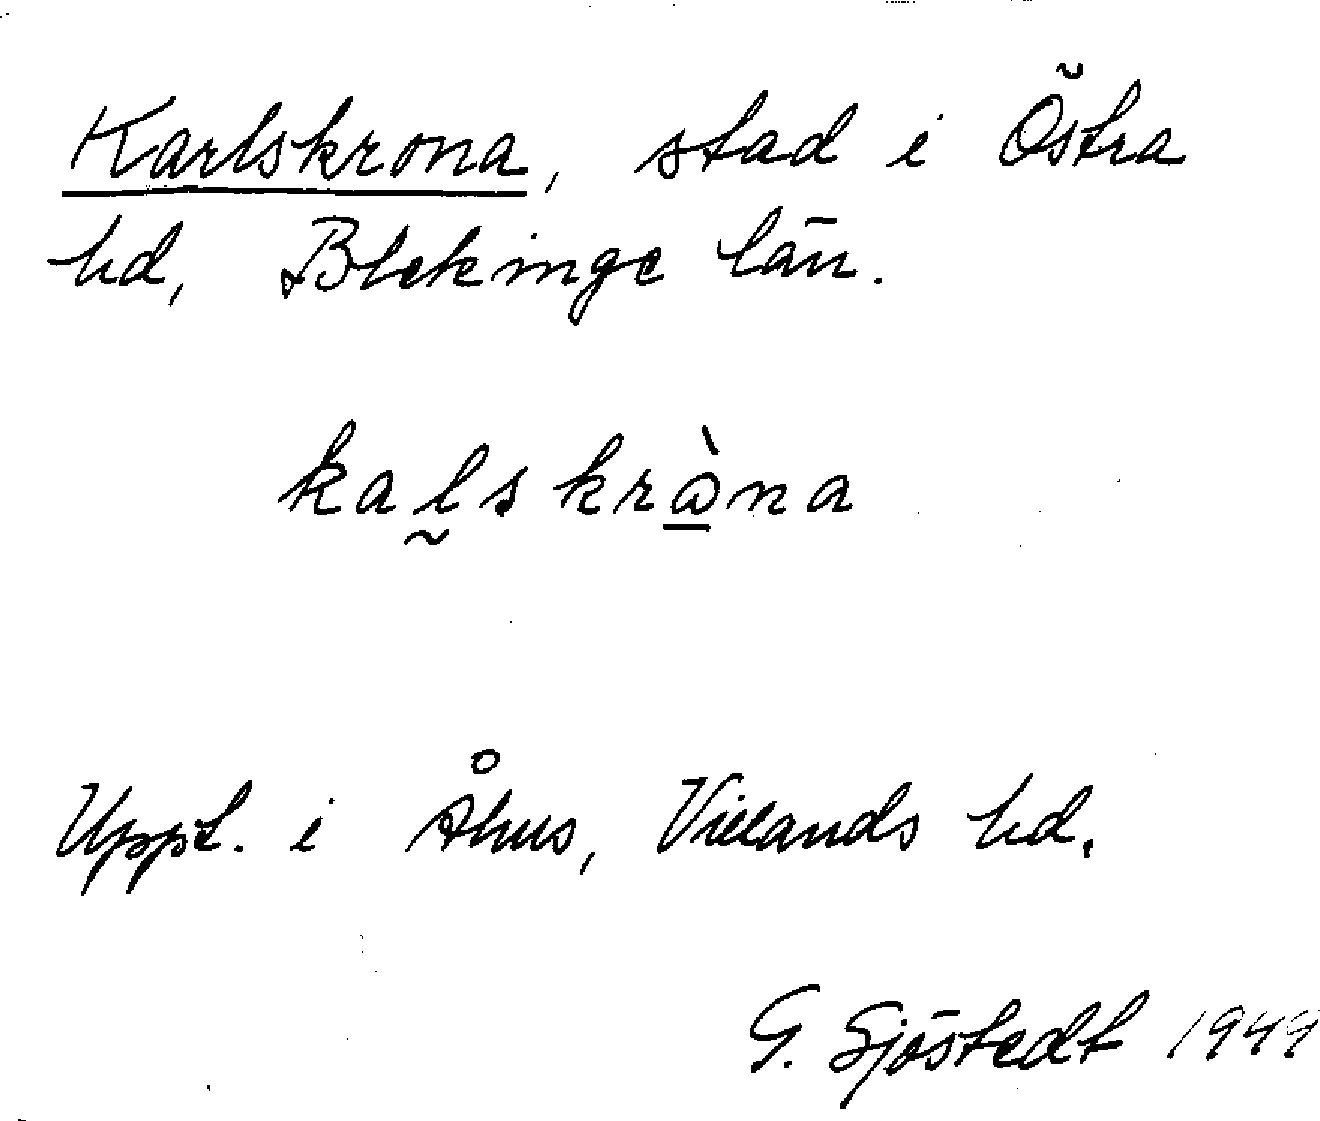 Karlskrona, stad i Östra
hd, Blekinge län.
kal̰skrὼ̱na
Uppt. i Åhus, Villands hd.
G. Sjöstedt 1949